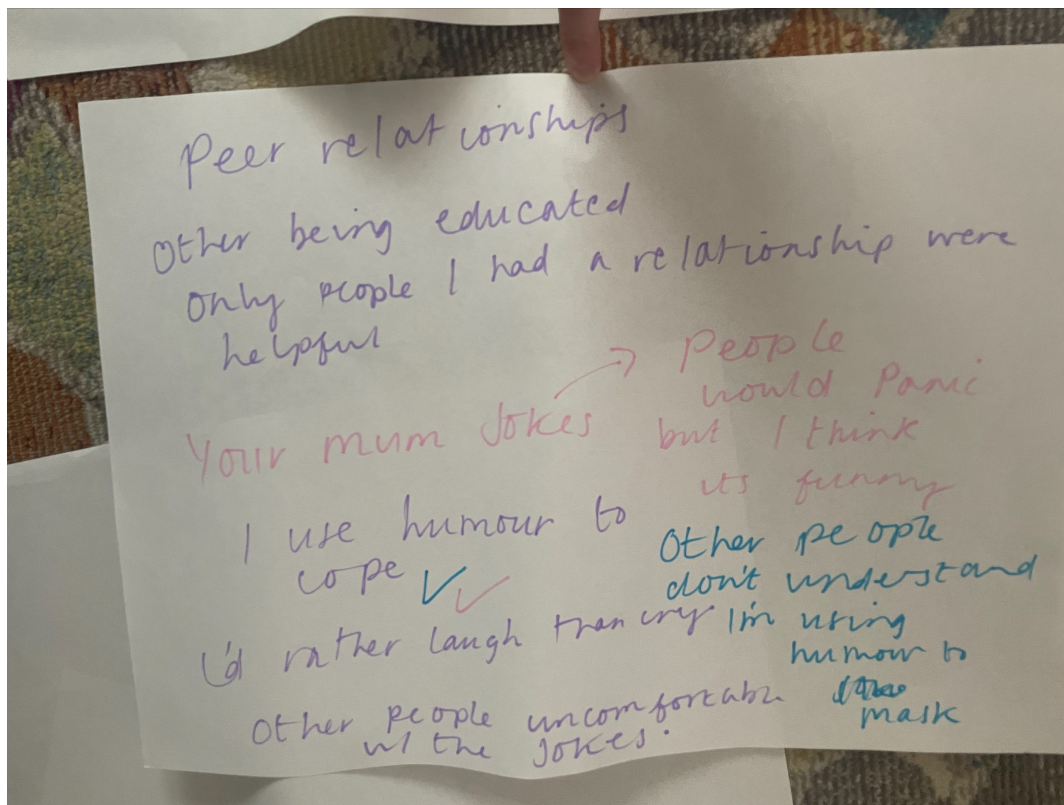 Peer relationships
Other being educated
only people I had a relationship were
helpful
Your mum Jokes → People
would Panic
but I think
its funny
I use humour to
cope ✓✓
I'd rather laugh than cry
Other people
don't understand
I'm using
humour to
mask
Other people uncomfortable
w/ the jokes.